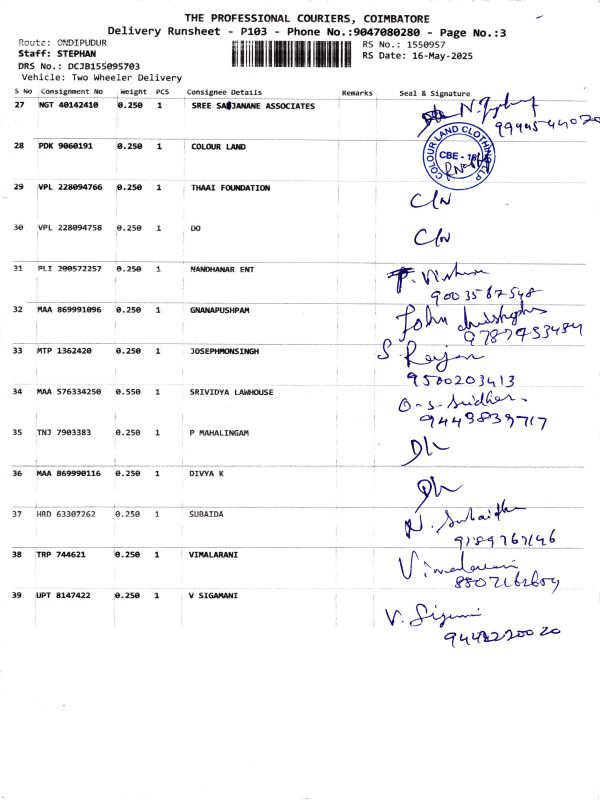 THE PROFESSIONAL COURIERS, COIMBATORE
Delivery Runsheet - P103 - Phone No.:9047080280 - Page No.:3
Route: ONDIPUDUR
RS No.: 1550957
Staff: STEPHAN
RS Date: 16-May-2025
DRS No.: DCJB155095703
Vehicle: Two Wheeler Delivery
S No Consignment No Weight PCS Consignee Details Remarks Seal & Signature
27 NGT 40142410 0.250 1 SREE SAIJANANE ASSOCIATES
28 PDK 9060191 0.250 1 COLOUR LAND
COLOUR LAND CLOTHING LLP
CBE - 16
29 VPL 228094766 0.250 1 THAAI FOUNDATION C/N
30 VPL 228094758 0.250 1 DO C/N
31 PLI 200572257 0.250 1 NANDHANAR ENT
9003567548
32 MAA 869991096 0.250 1 GNANAPUSHPAM John
9787453484
33 MTP 1362420 0.250 1 JOSEPHMONSINGH S. Rajan
9500203413
34 MAA 576334250 0.550 1 SRIVIDYA LAWHOUSE O-S-Sridhar.
9443839717
35 TNJ 7903383 0.250 1 P MAHALINGAM
36 MAA 869990116 0.250 1 DIVYA K
37 HRD 63307262 0.250 1 SUBAIDA N. Subaidha
9189767146
38 TRP 744621 0.250 1 VIMALARANI Vimalarani
8807162654
39 UPT 8147422 0.250 1 V SIGAMANI V. Sigamani